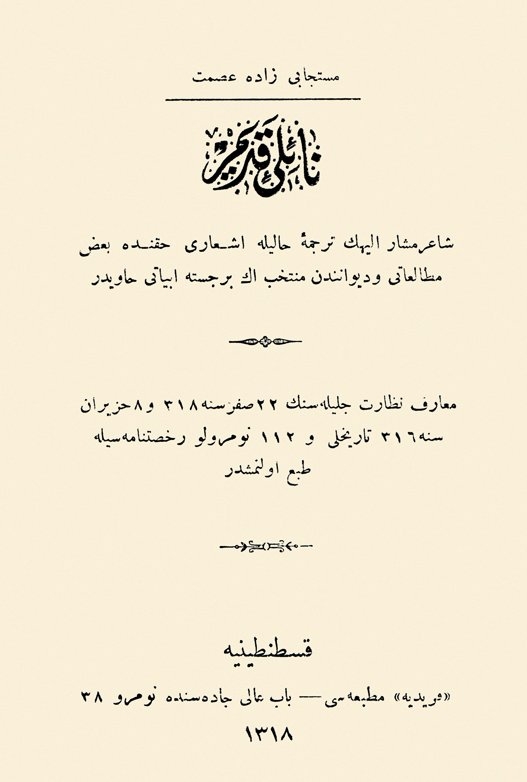 مستجابى زاده عصمت
نائلئ قديم
شاعر مشار اليهك ترجمۀ حاليله اشعارى حقنده بعض
مطالعاتى و ديوانندن منتخب اك برجسته ابياتى حاويدر
معارف نظارت جليله‌سنك ٢٢ صفر سنه ٣١٨ و ٨ حزيران
سنه ٣١٦ تاريخلى و ١١٢ نومرولو رخصتنامه‌سيله
طبع اولنمشدر
قسطنطينيه
«فريديه» مطبعه‌سى — باب عالى جاده‌سنده نومرو ٣٨
١٣١٨